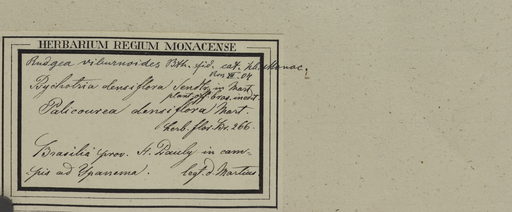 HERBARIUM REGIUM MONACENSE
Rudgea viburnoides Bth. fid. cat. hb. Monac.
Psychotria densiflora in Mart.
plant. off. bras. inedit.
Palicourea densiflora Mart.
herb. flor. br. 266.
Brasilia prov. St. Pauly in cam-
pis ad Ypanema. legt. d. Martius